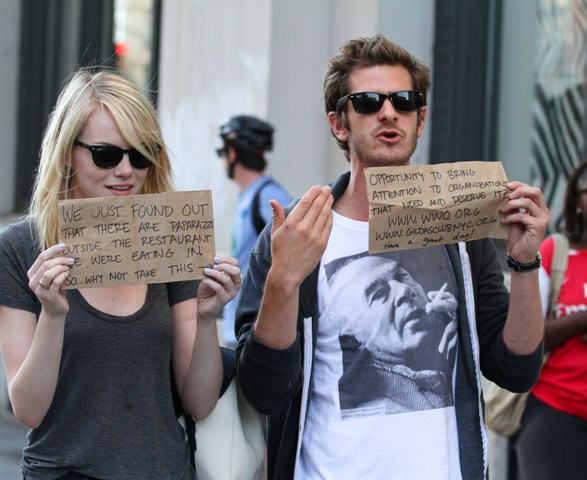 WE JUST FOUND OUT
THAT THERE ARE PAPARAZZI
OUTSIDE THE RESTAURANT
WE WERE EATING IN
SO...WHY NOT TAKE THIS
OPPORTUNITY TO BRING
ATTENTION TO ORGANIZATIONS
THAT NEED AND DESERVE IT?
WWW.WWO.ORG
WWW.GILDASCLUBNYC.ORG
Have a great day!